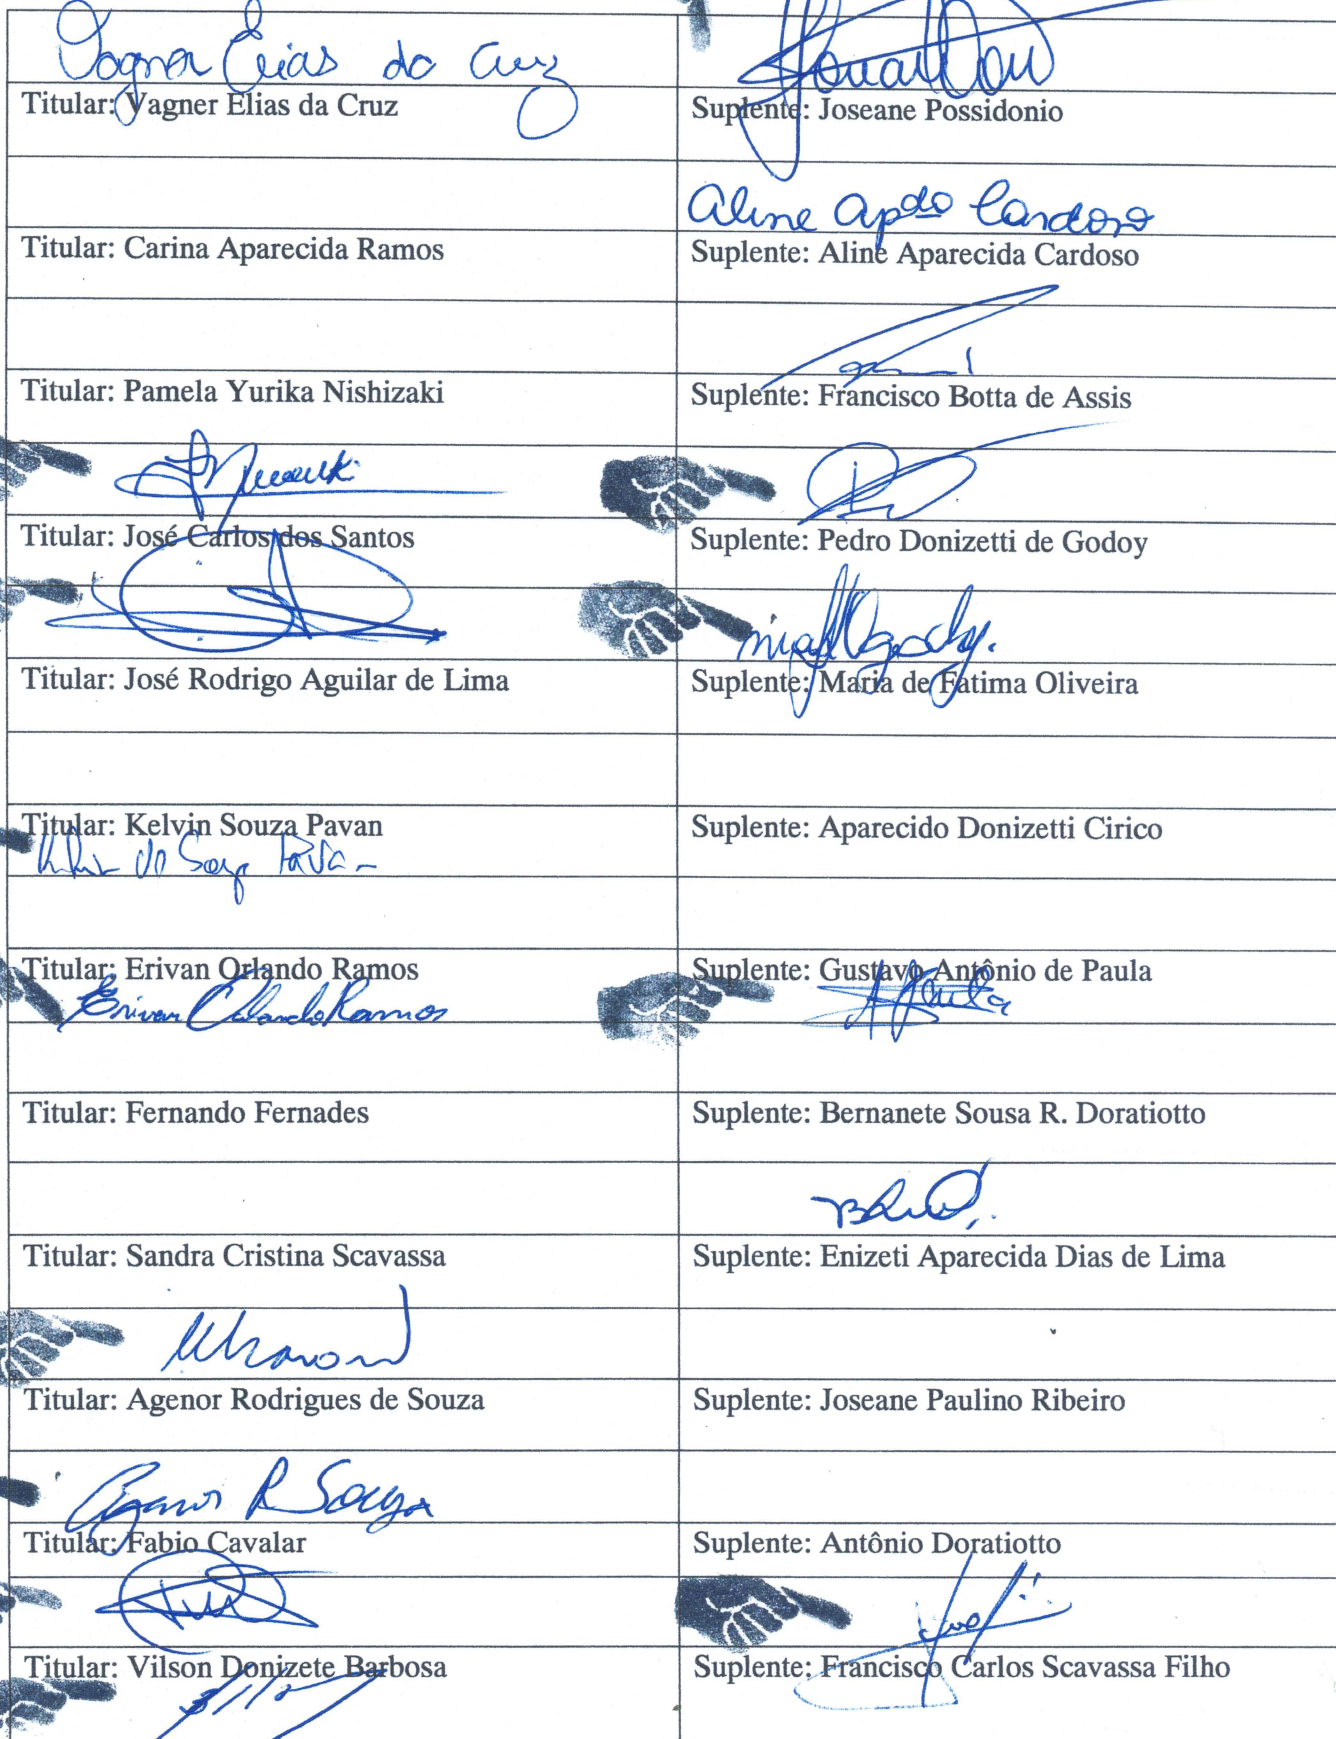 Vagner Elias da Cruz
Titular: Vagner Elias da Cruz
Suplente: Joseane Possidonio
Aline Apda Cardoso
Titular: Carina Aparecida Ramos
Suplente: Aline Aparecida Cardoso
Titular: Pamela Yurika Nishizaki
Suplente: Francisco Botta de Assis
Titular: José Carlos dos Santos
Suplente: Pedro Donizetti de Godoy
Titular: José Rodrigo Aguilar de Lima
Suplente: Maria de Fatima Oliveira
Titular: Kelvin Souza Pavan
Suplente: Aparecido Donizetti Cirico
Titular: Erivan Orlando Ramos
Suplente: Gustavo Antônio de Paula
Erivan Orlando Ramos
Titular: Fernando Fernades
Suplente: Bernanete Sousa R. Doratiotto
Titular: Sandra Cristina Scavassa
Suplente: Enizeti Aparecida Dias de Lima
Titular: Agenor Rodrigues de Souza
Suplente: Joseane Paulino Ribeiro
Agenor R Souza
Titular: Fabio Cavalar
Suplente: Antônio Doratiotto
Titular: Vilson Donizete Barbosa
Suplente: Francisco Carlos Scavassa Filho